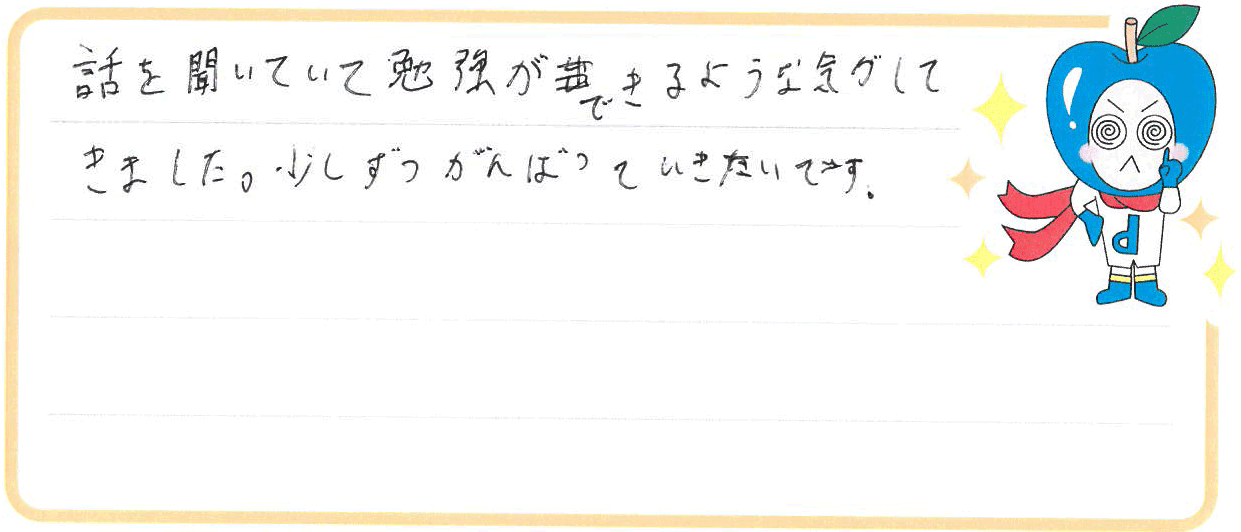 話を聞いていて勉強ができるような気がして
きました。少しずつがんばっていきたいです。
d